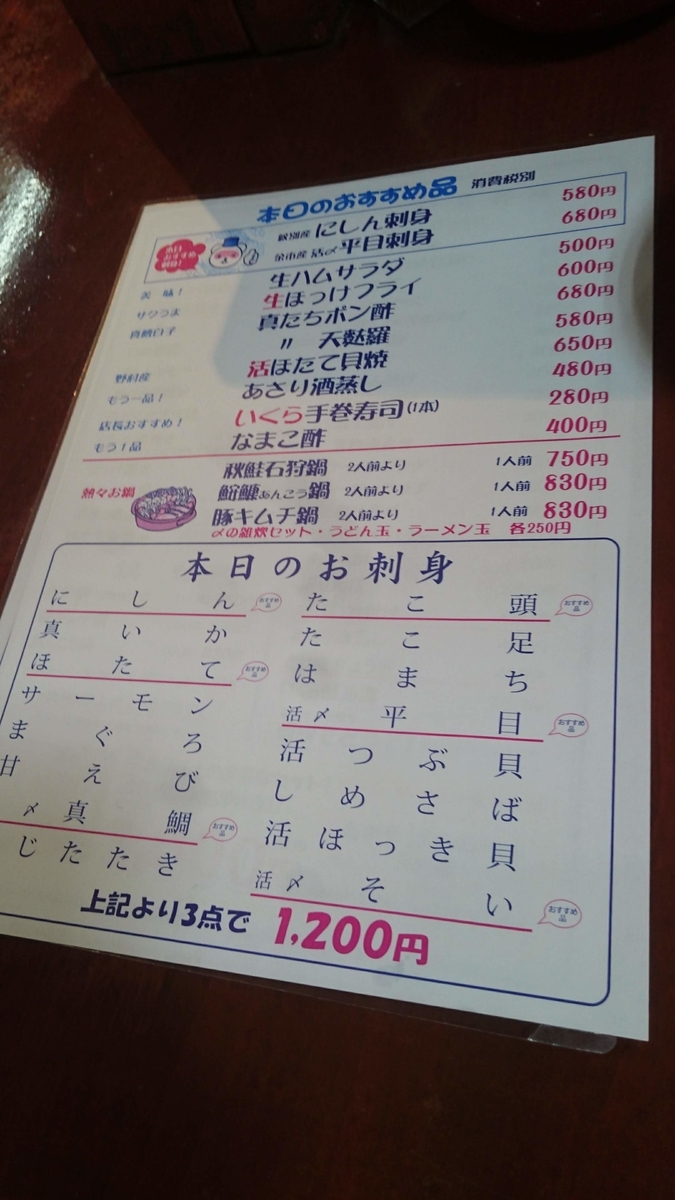 本日のおすすめ品 消費税別
本日おすすめ刺身!
紋別産 にしん刺身 580円
余市産 活〆平目刺身 680円
美味! 生ハムサラダ 500円
サクうま 生ほっけフライ 600円
真鱈白子 真たちポン酢 680円
〃 天麩羅 580円
野付産 活ほたて貝焼 650円
もう一品! あさり酒蒸し 480円
店長おすすめ! いくら手巻寿司(1本) 280円
もう1品 なまこ酢 400円
熱々お鍋
秋鮭石狩鍋 2人前より 1人前 750円
鮟鱇あんこう鍋 2人前より 1人前 830円
豚キムチ鍋 2人前より 1人前 830円
〆の雑炊セット・うどん玉・ラーメン玉 各250円
本日のお刺身
にしん おすすめ品 たこ頭 おすすめ品
真いか たこ足
ほたて おすすめ品 はまち
サーモン 活〆平目 おすすめ品
まぐろ 活つぶ貝
甘えび しめさば
〆真鯛 おすすめ品 活ほっき貝
じたたき 活〆そい おすすめ品
上記より3点で 1,200円